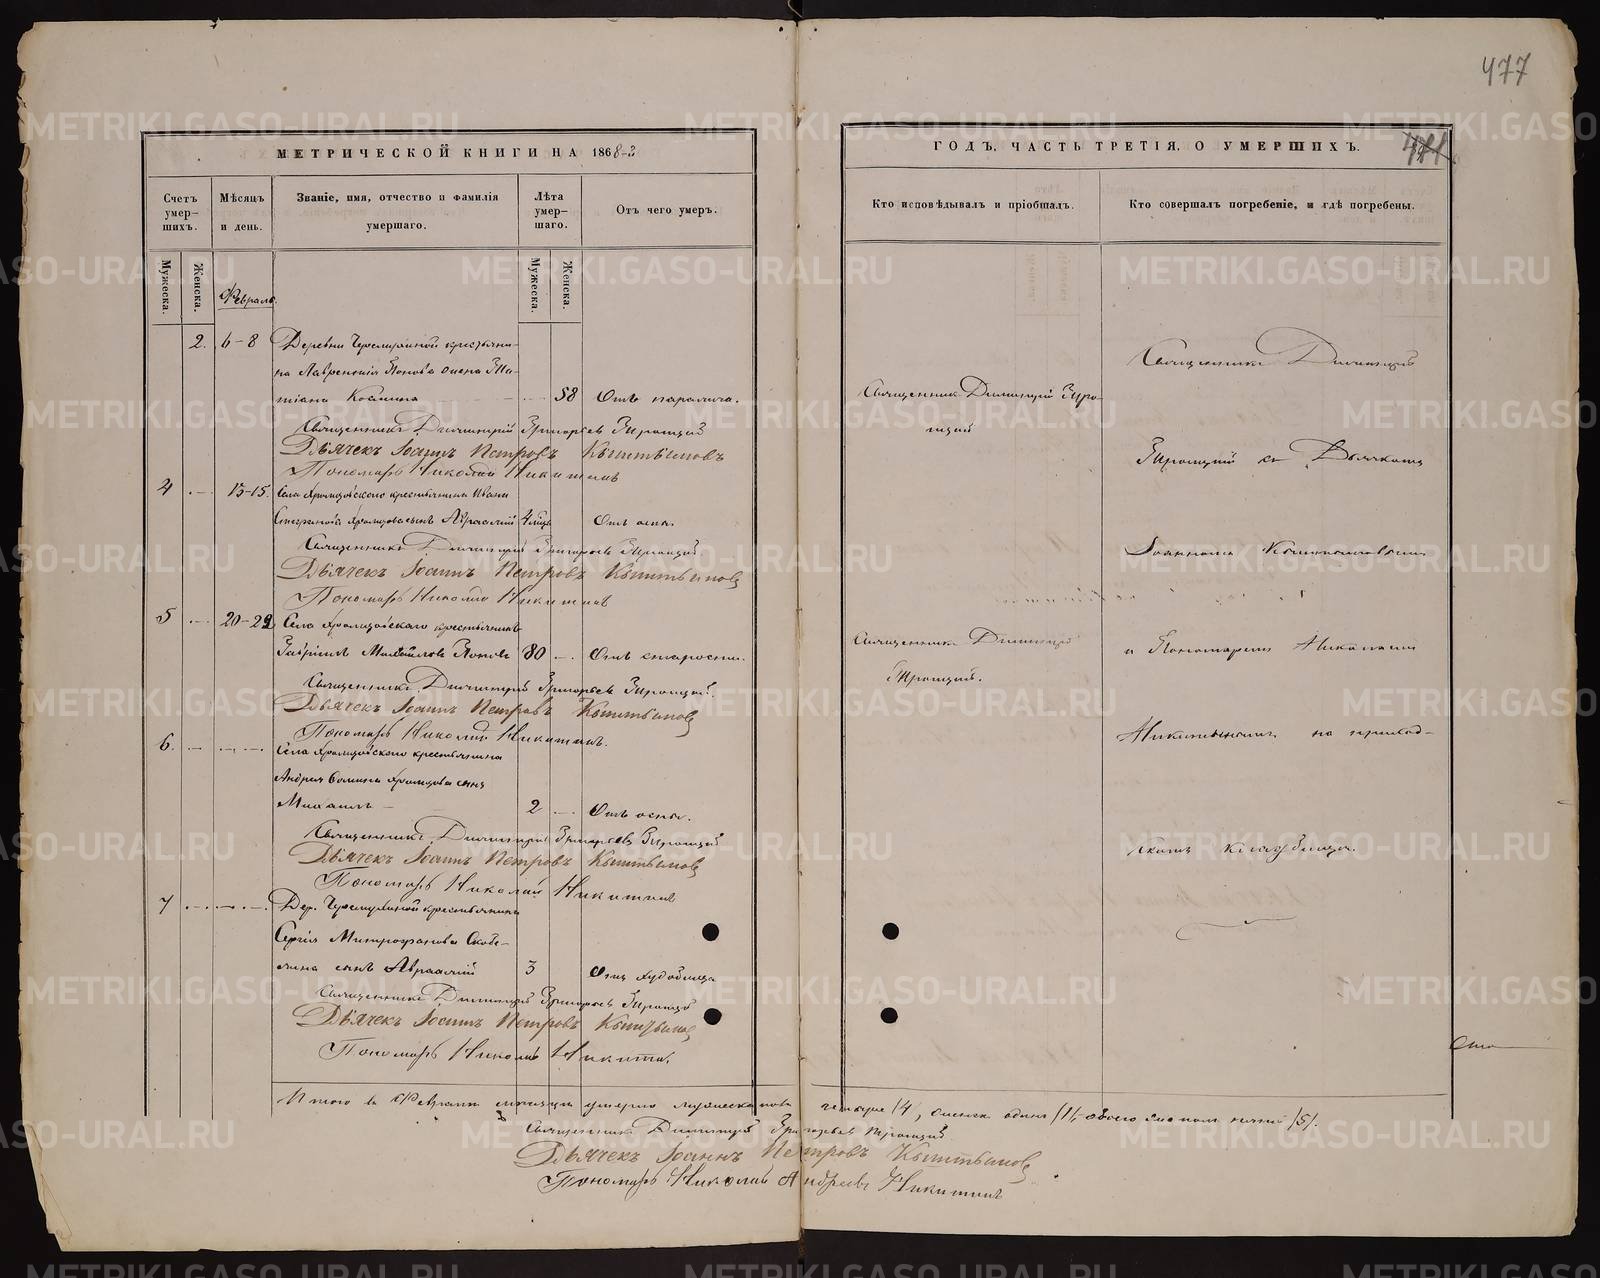 477
МЕТРИЧЕСКОЙ КНИГИ НА 1868-й
ГОДЪ, ЧАСТЬ ТРЕТІЯ, О УМЕРШИХЪ.
Счетъ умер-шихъ.
Мѣсяцъ и день.
Званіе, имя, отчество и фамилія умершаго.
Лѣта умер-шаго.
Отъ чего умеръ.
Кто исповѣдывалъ и пріобщалъ.
Кто совершалъ погребеніе, и гдѣ погребены.
Мужеска.
Женска.
Мужеска.
Женска.
Февраль.
2. 6-8 Деревни крестьяни-
на Лаврентія Попова жена Та-
тіана Козмина 58 Отъ паралича.
Священникъ Димитрій Григорьевъ Троицкій
Дьячекъ Іоаннъ Петровъ Кыштымовъ
Пономарь Николай Никитинъ
4 13-15. Села крестьянина Ивана
сынъ Авраамій 4 Отъ оспы.
Священникъ Димитрій Григорьевъ Троицкій
Дьячекъ Іоаннъ Петровъ Кыштымовъ
Пономарь Николай Никитинъ
5 20-22 Села крестьянинъ
Гавріилъ Михайловъ Поповъ 80 Отъ старости.
Священникъ Димитрій Григорьевъ Троицкій.
Дьячекъ Іоаннъ Петровъ Кыштымовъ
Пономарь Николай Никитинъ.
6. Села крестьянина
Андрея сынъ
Михаилъ 2 Отъ оспы.
Священникъ Димитрій Григорьевъ Троицкій
Дьячекъ Іоаннъ Петровъ Кыштымовъ
Пономарь Николай Никитинъ
7 Дер. крестьянина
Сергія Митрофанова Скобе-
лина сынъ Авраамій 3 Отъ
Священникъ Димитрій Григорьевъ Троицкій
Дьячекъ Іоаннъ Петровъ Кыштымовъ
Пономарь Николай Никитинъ
Священникъ Димитрій Тро-
ицкій
Священникъ Димитрій
Троицкій.
Священникъ Димитрій
Троицкій съ Дьячкомъ
Іоанномъ Кыштымовымъ
и Пономаремъ Николаемъ
Никитинымъ на приход-
скомъ кладбищѣ.
Итого въ Февралѣ мѣсяцѣ умерло мужеска пола четыре /4/, женска одна /1/, обоего пола /5/.
Священникъ Димитрій Григорьевъ Троицкій
Дьячекъ Іоаннъ Петровъ Кыштымовъ
Пономарь Николай Андреевъ Никитинъ
METRIKI.GASO-URAL.RU